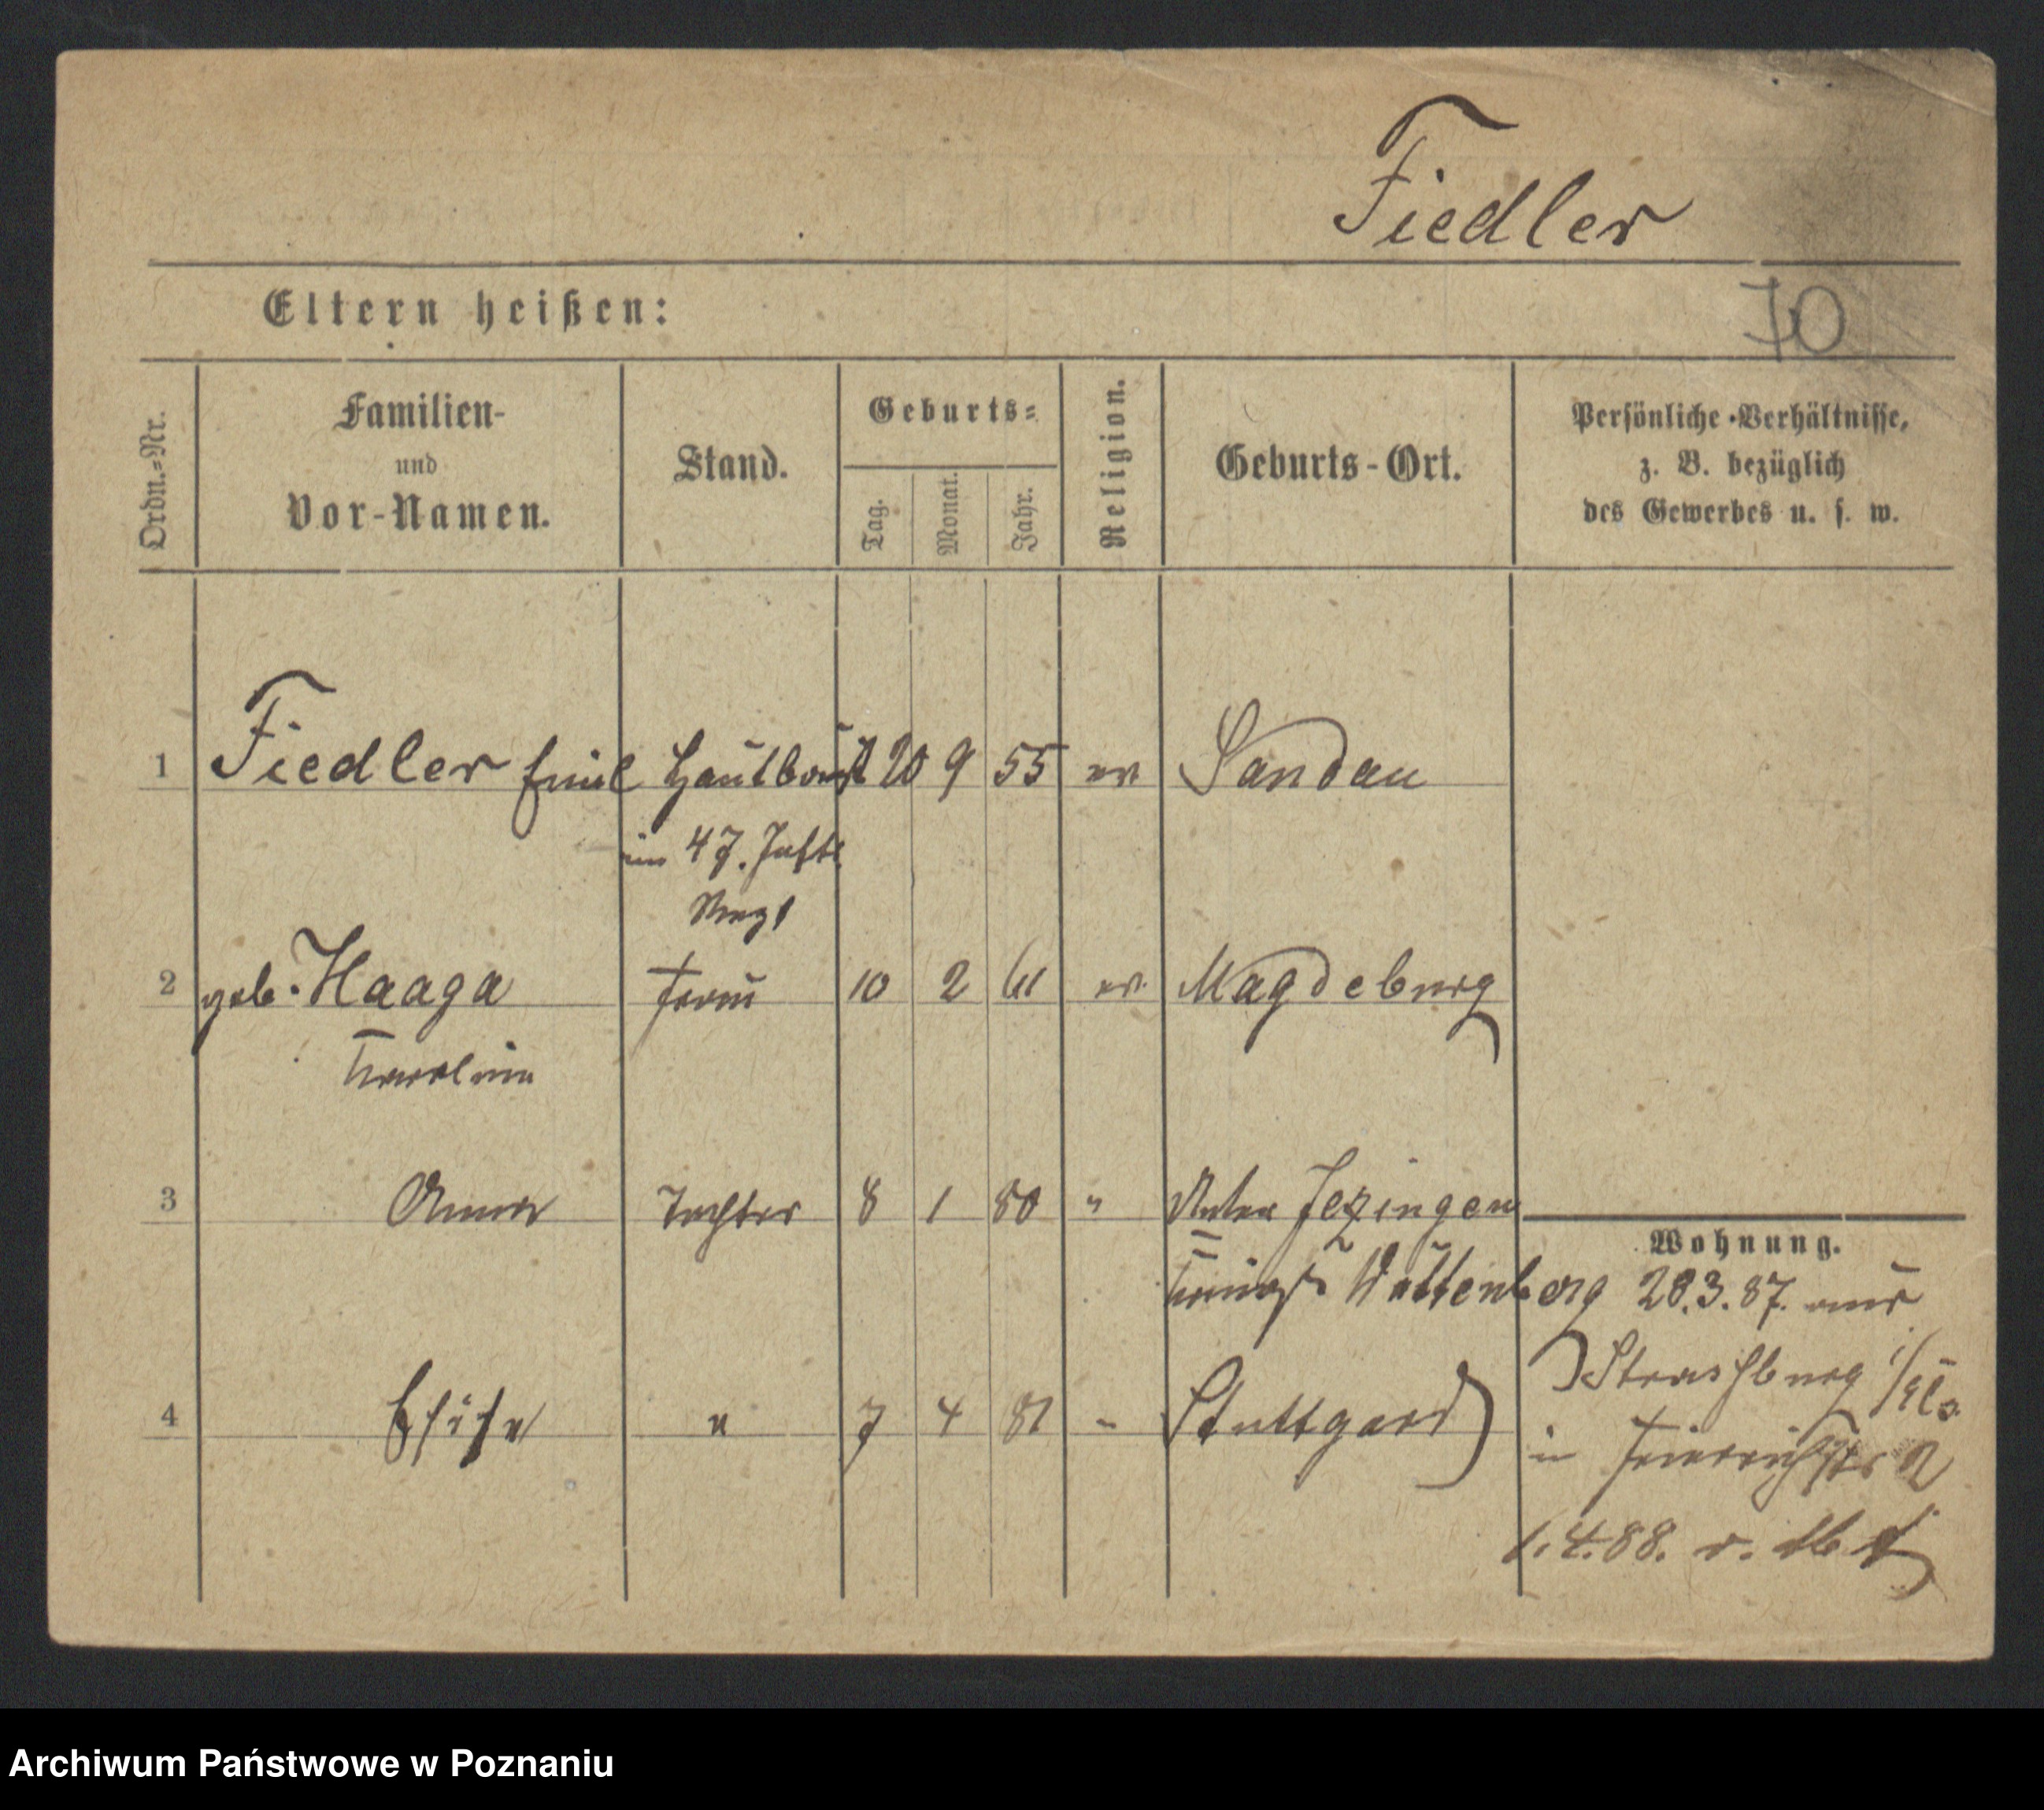 Fiedler
Eltern heißen:
70
Ordn.=Nr.
Familien-
und
Vor-Namen.
Stand.
Geburts=
Tag.
Monat.
Jahr.
Religion.
Geburts-Ort.
Persönliche Verhältnisse,
z. B. bezüglich
des Gewerbes u. s. w.
1 Fiedler Emil Hautboist 20 9 55 ev Sandau
im 47. Inftr
Regt
2 geb. Haaga Frau 10 2 61 ev. Magdeburg
Karoline
3 Anna Tochter 8 1 80 " Unter Jezingen
Wohnung.
Königr Wüttenberg 28.3.87. aus
Strassburg i/Els
4 " 7 4 81 " Stuttgard
in 2
1.4.88. v.
Archiwum Państwowe w Poznaniu